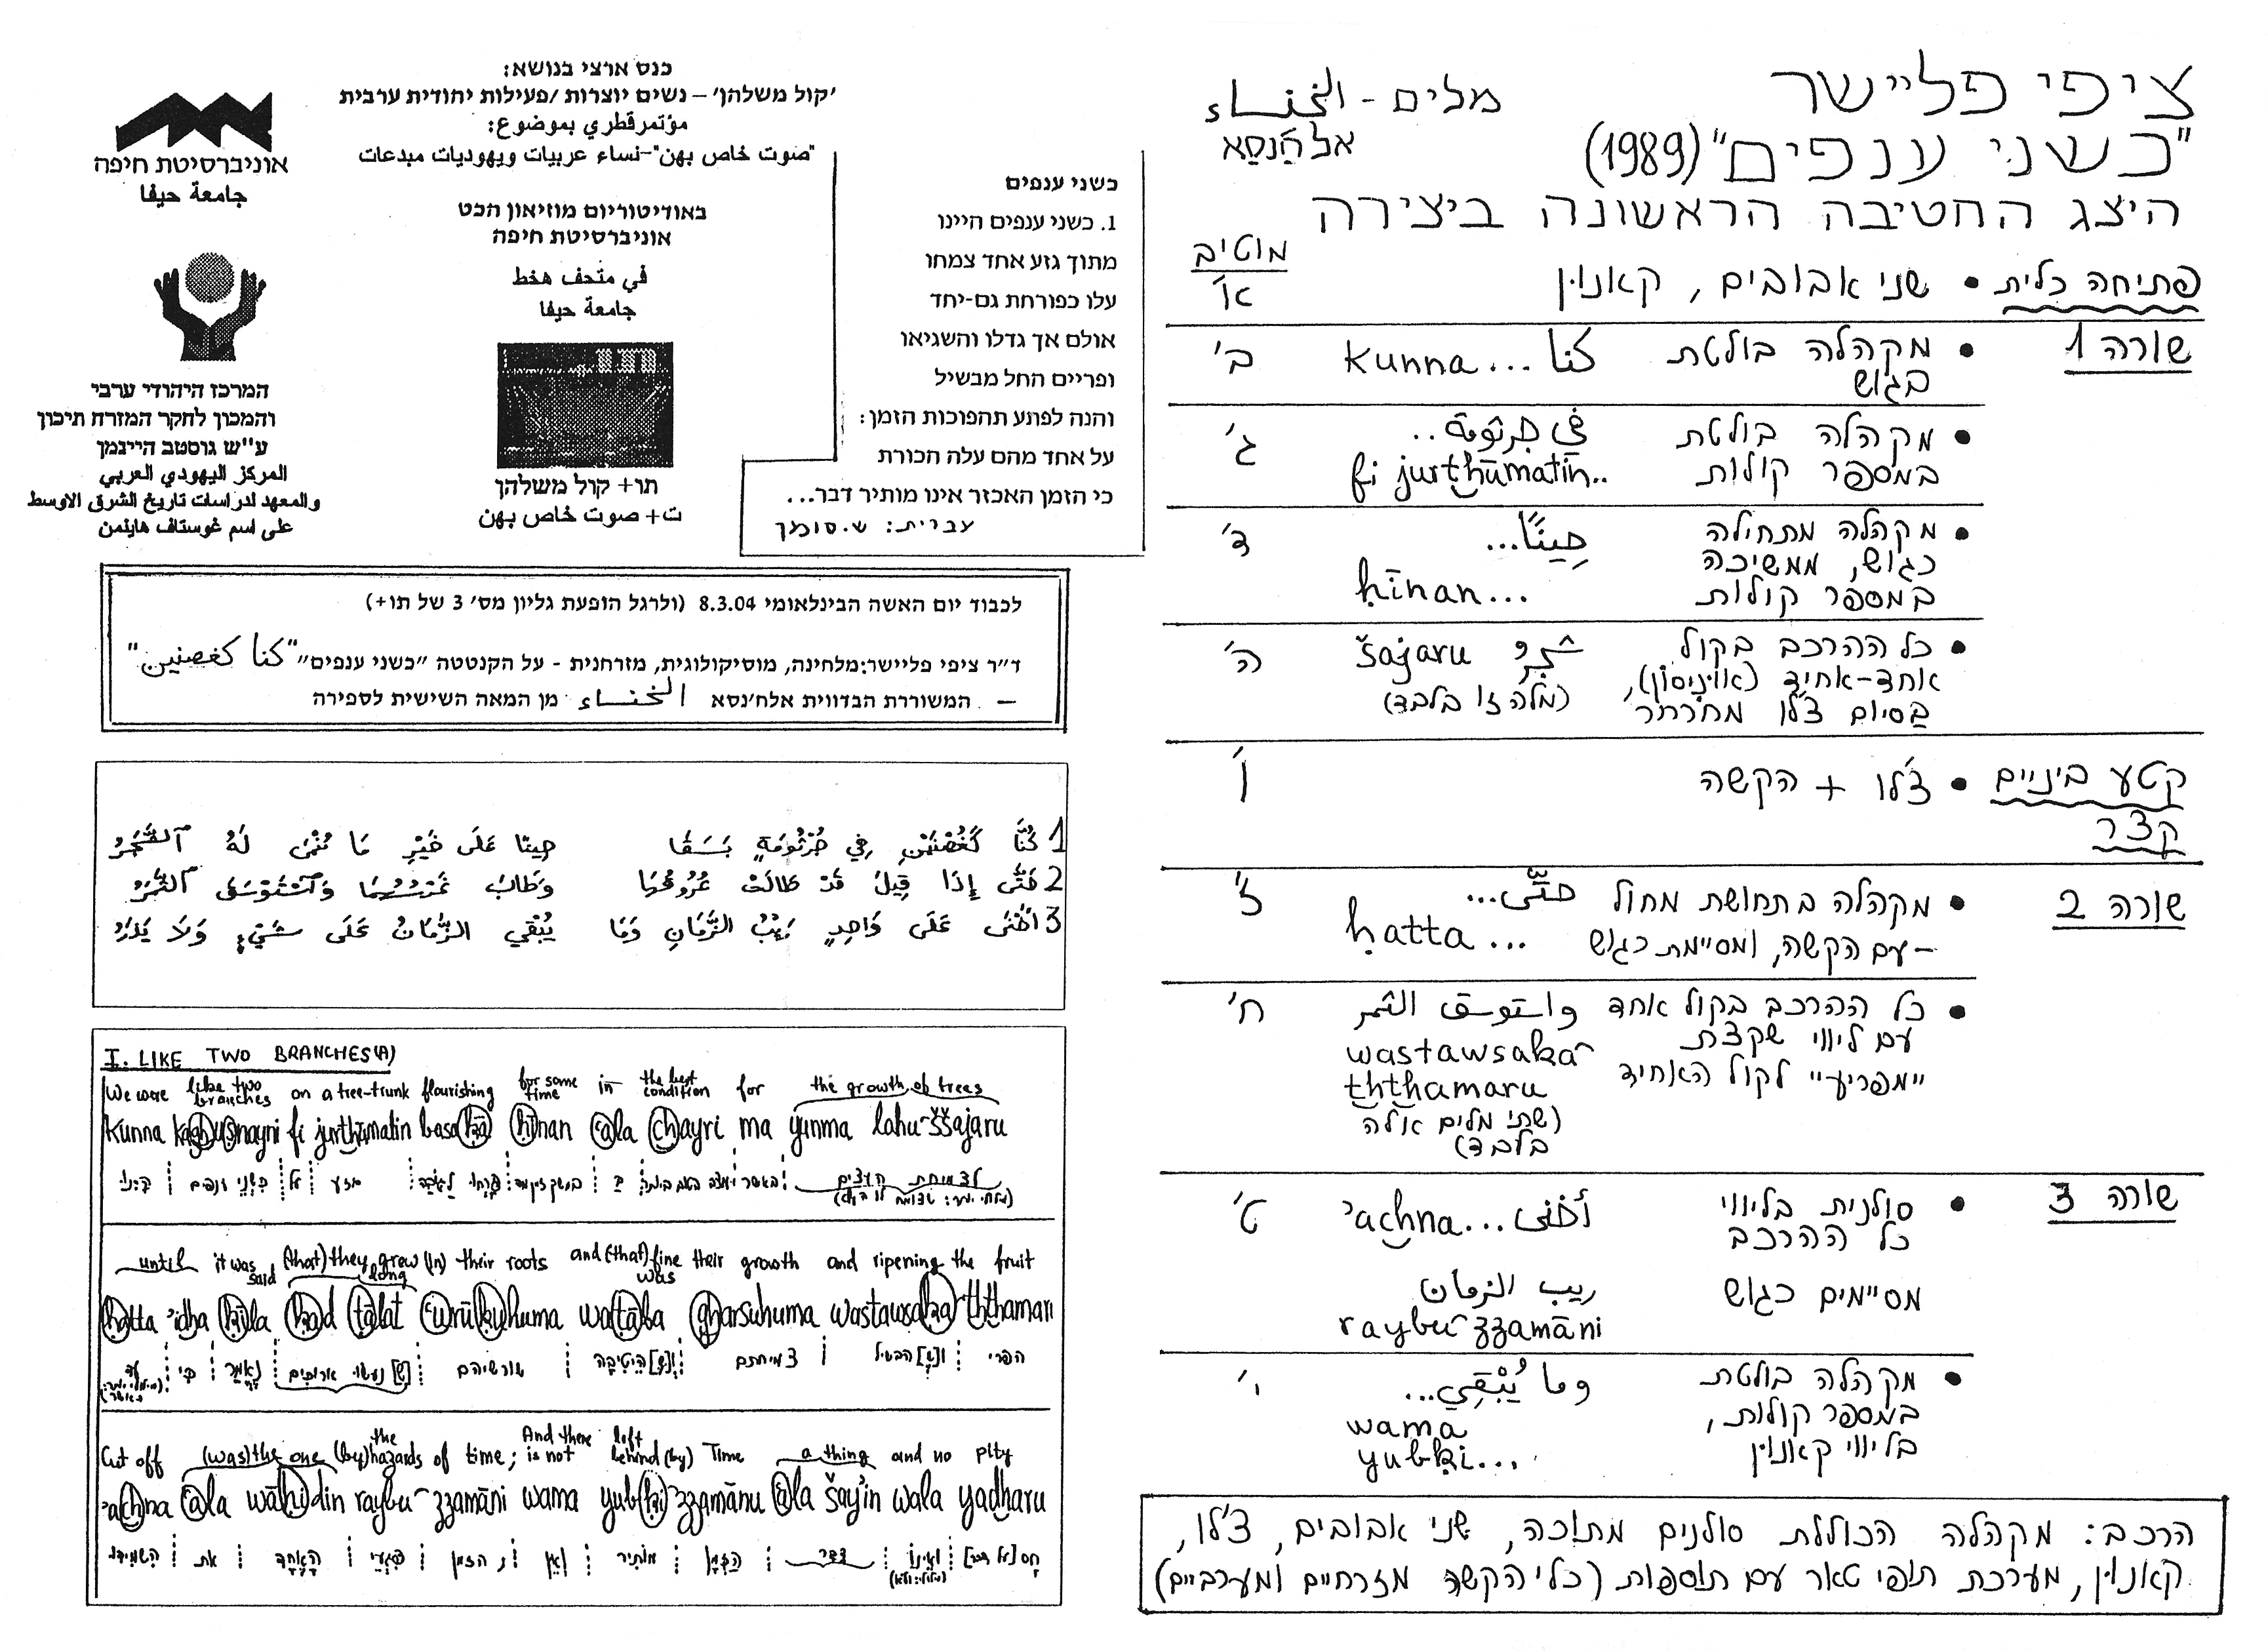 ציפי פליישר
"כשני ענפים" (1989)
מלים - الخنساء
אלח'נסא
היצג החטיבה הראשונה ביצירה
מוטיב
פתיחה כלית • שני אבובים, קאנון
א'
שורה 1 • מקהלה בולטת בגוש
كنا ...kunna
ב'
• מקהלה בולטת במספר קולות
في جرثومة..
fi jurthūmatin..
ג'
• מקהלה מתחילה כגוש, ממשיכה במספר קולות
حينًا...
ḥīnan...
ד'
• כל ההרכב בקול אחד-אחיד (אוניסון), בסיום צ'לו מחרחר
šajaru شجرُ
(מלה זו בלבד)
ה'
קטע ביניים קצר • צ'לו + הקשה
ו'
שורה 2 • מקהלה בתחושת מחול
-עם הקשה, ומסיימת כגוש
حتّى...
ḥatta...
ז'
• כל ההרכב בקול אחד
עם ליווי שקצת
"מפריע" לקול האחיד
واستوسق الثمر
wastawsaḳa
ththamaru
(שתי מלים אלה בלבד)
ח'
שורה 3 • סולנית בליווי
כל ההרכב
أخنى...'achna
ט'
מסיימים כגוש
ريب الزمان
raybu zzamāni
• מקהלה בולטת
במספר קולות,
בליווי קאנון
وما يُبْقِي...
wama
yubḳi...
י'
הרכב: מקהלה הכוללת סולנים מתוכה, שני אבובים, צ'לו,
קאנון, מערכת תופי טאר עם תוספות (כלי הקשה מזרחיים ומערביים)
כנס ארצי בנושא:
'קול משלהן' – נשים יוצרות /פעילות יהודית ערבית
مؤتمر قطري بموضوع:
"صوت خاص بهن"-نساء عربيات ويهوديات مبدعات
באודיטוריום מוזיאון הכט
אוניברסיטת חיפה
في متحف هخط
جامعة حيفا
תו+ קול משלהן
ت+ صوت خاص بهن
אוניברסיטת חיפה
جامعة حيفا
המרכז היהודי ערבי
והמכון לחקר המזרח תיכון
ע"ש גוסטב היינמן
المركز اليهودي العربي
والمعهد لدراسات تاريخ الشرق الاوسط
على اسم غوستاف هاينمن
כשני ענפים
1. כשני ענפים היינו
מתוך גזע אחד צמחו
עלו כפורחת גם-יחד
אולם אך גדלו והשגיאו
ופריים החל מבשיל
והנה לפתע תהפוכות הזמן:
על אחד מהם עלה הכורת
כי הזמן האכזר אינו מותיר דבר...
עברית: ש. סומך
לכבוד יום האשה הבינלאומי 8.3.04 (ולרגל הופעת גליון מס' 3 של תו+)
ד"ר ציפי פליישר:מלחינה, מוסיקולוגית, מזרחנית - על הקנטטה "כשני ענפים" "كنا كغصنين"
– המשוררת הבדווית אלח'נסא الخنساء מן המאה השישית לספירה
1 كُنَّا كَغُصْنَيْنِ فِي جُرْثُومَةٍ بَسَقَا حِينًا عَلَى خَيْرِ مَا يُنْمَى لَهُ الشَّجَرُ
2 حَتَّى إِذَا قِيلَ قَدْ طَالَتْ عُرُوقُهُمَا وَطَابَ غَرْسُهُمَا وَاسْتَوْسَقَ الثَّمَرُ
3 أَخْنَى عَلَى وَاحِدٍ رَيْبُ الزَّمَانِ وَمَا يُبْقِي الزَّمَانُ عَلَى شَيْءٍ وَلَا يَذَرُ
I. LIKE TWO BRANCHES(A)
We were like two branches on a tree-trunk flourishing for some time in the best condition for the growth of trees
Kunna kaghuṣnayni fi jurthūmatin basaḳā ḥīnan 'ala chayri ma yunma lahu ššajaru
היינו כשני ענפים על גזע
לצמיחת העצים
until it was said (that) they grew long (in) their roots and (that) was fine their growth and ripening the fruit
ḥatta 'idha ḳīla ḳad ṭālat 'urūḳuhuma waṭṭāba gharsuhuma wastawsaḳa ththamaru
עד כי נאמר [ש] נעשו ארוכים שורשיהם ו[ש]היטיבה צמיחתם ו[ש]הבשיל הפרי
Cut off (was) the one (by) the hazards of time; And there is not left behind (by) Time a thing and no pity
'achna 'ala wāḥidin raybu zzamāni wama yubḳi zzamānu 'ala šay'in wala yadharu
השמידו את האחד פגעי הזמן ו אין מותיר הזמן דבר ואינו חס [על דבר]